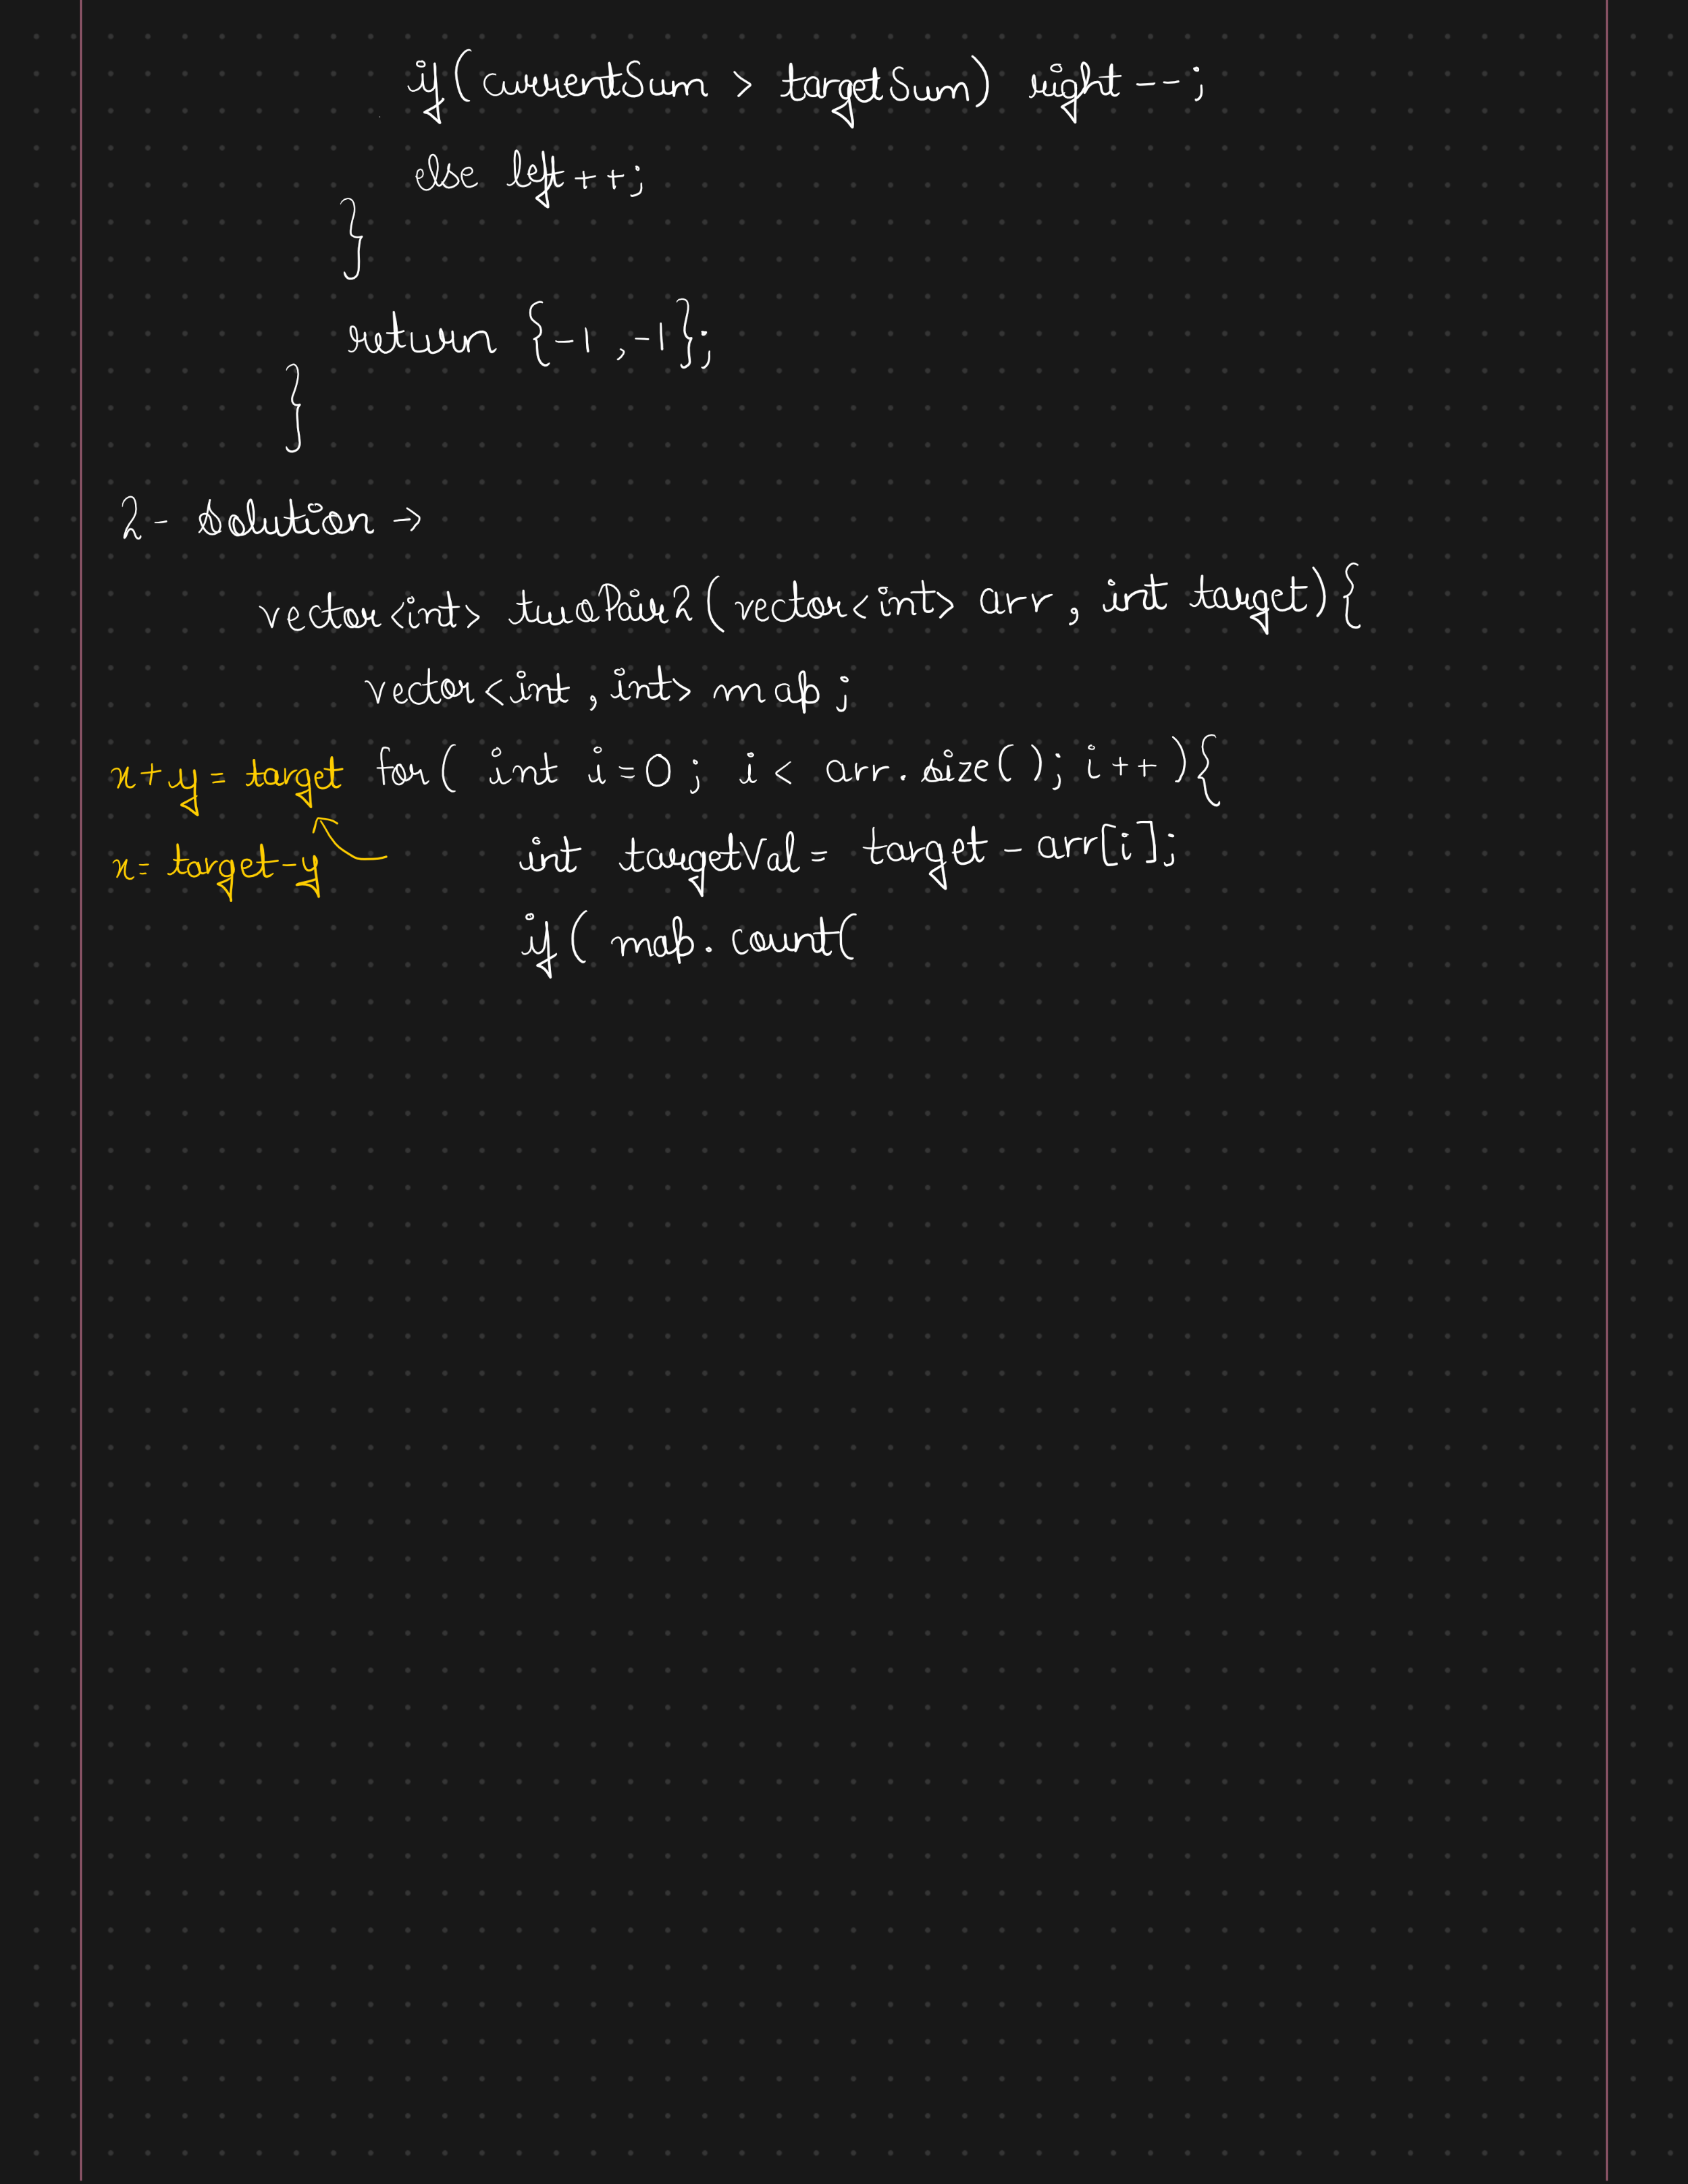 if(currentSum > targetSum) right--;
else left++;
}
return {-1,-1};
}
2- Solution →
vector<int> twoPair2(vector<int> arr, int target){
vector<int,int> map;
x+y = target for( int i=0; i< arr.size(); i++){
x= target-y int targetVal = target - arr[i];
if( map.count(